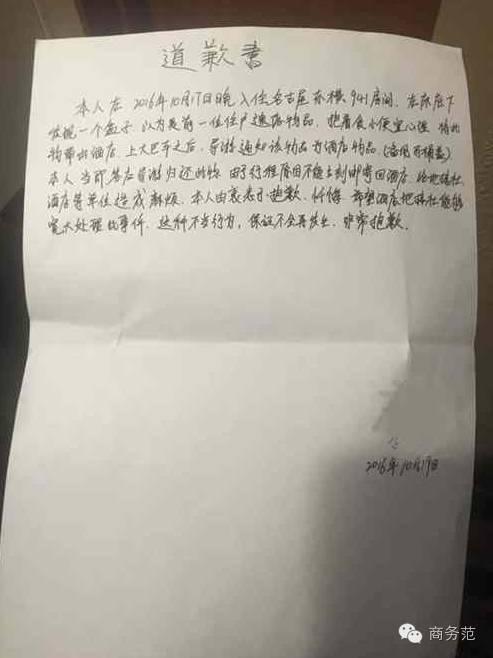 道歉書
本人在2016年10月17日晚入住名古屋东横941房间，在床底下
发现一个盒子，以为是前一位住户遗落物品，抱着贪小便宜心理，将此
物带出酒店，上大巴车之后，导游通知该物品为酒店物品（备用马桶盖）
本人当即答应导游归还此物，由于行程原因不能立刻邮寄回酒店，给地接社
酒店等单位造成麻烦。本人由衷表示抱歉、忏悔，希望酒店地接社能够
宽大处理此事件，这种不当行为，保证不会再发生，非常抱歉。
2016年10月19日
商务范